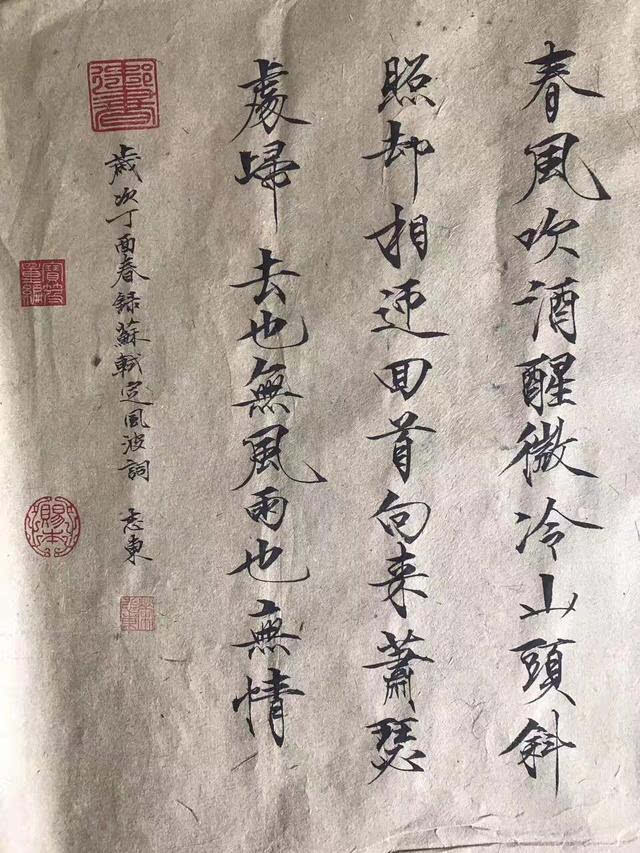 春風吹酒醒微冷山頭斜
照却相迎回首向来蕭瑟
處歸去也無風雨也無情
歲次丁酉春録蘇軾定風波詞 志東